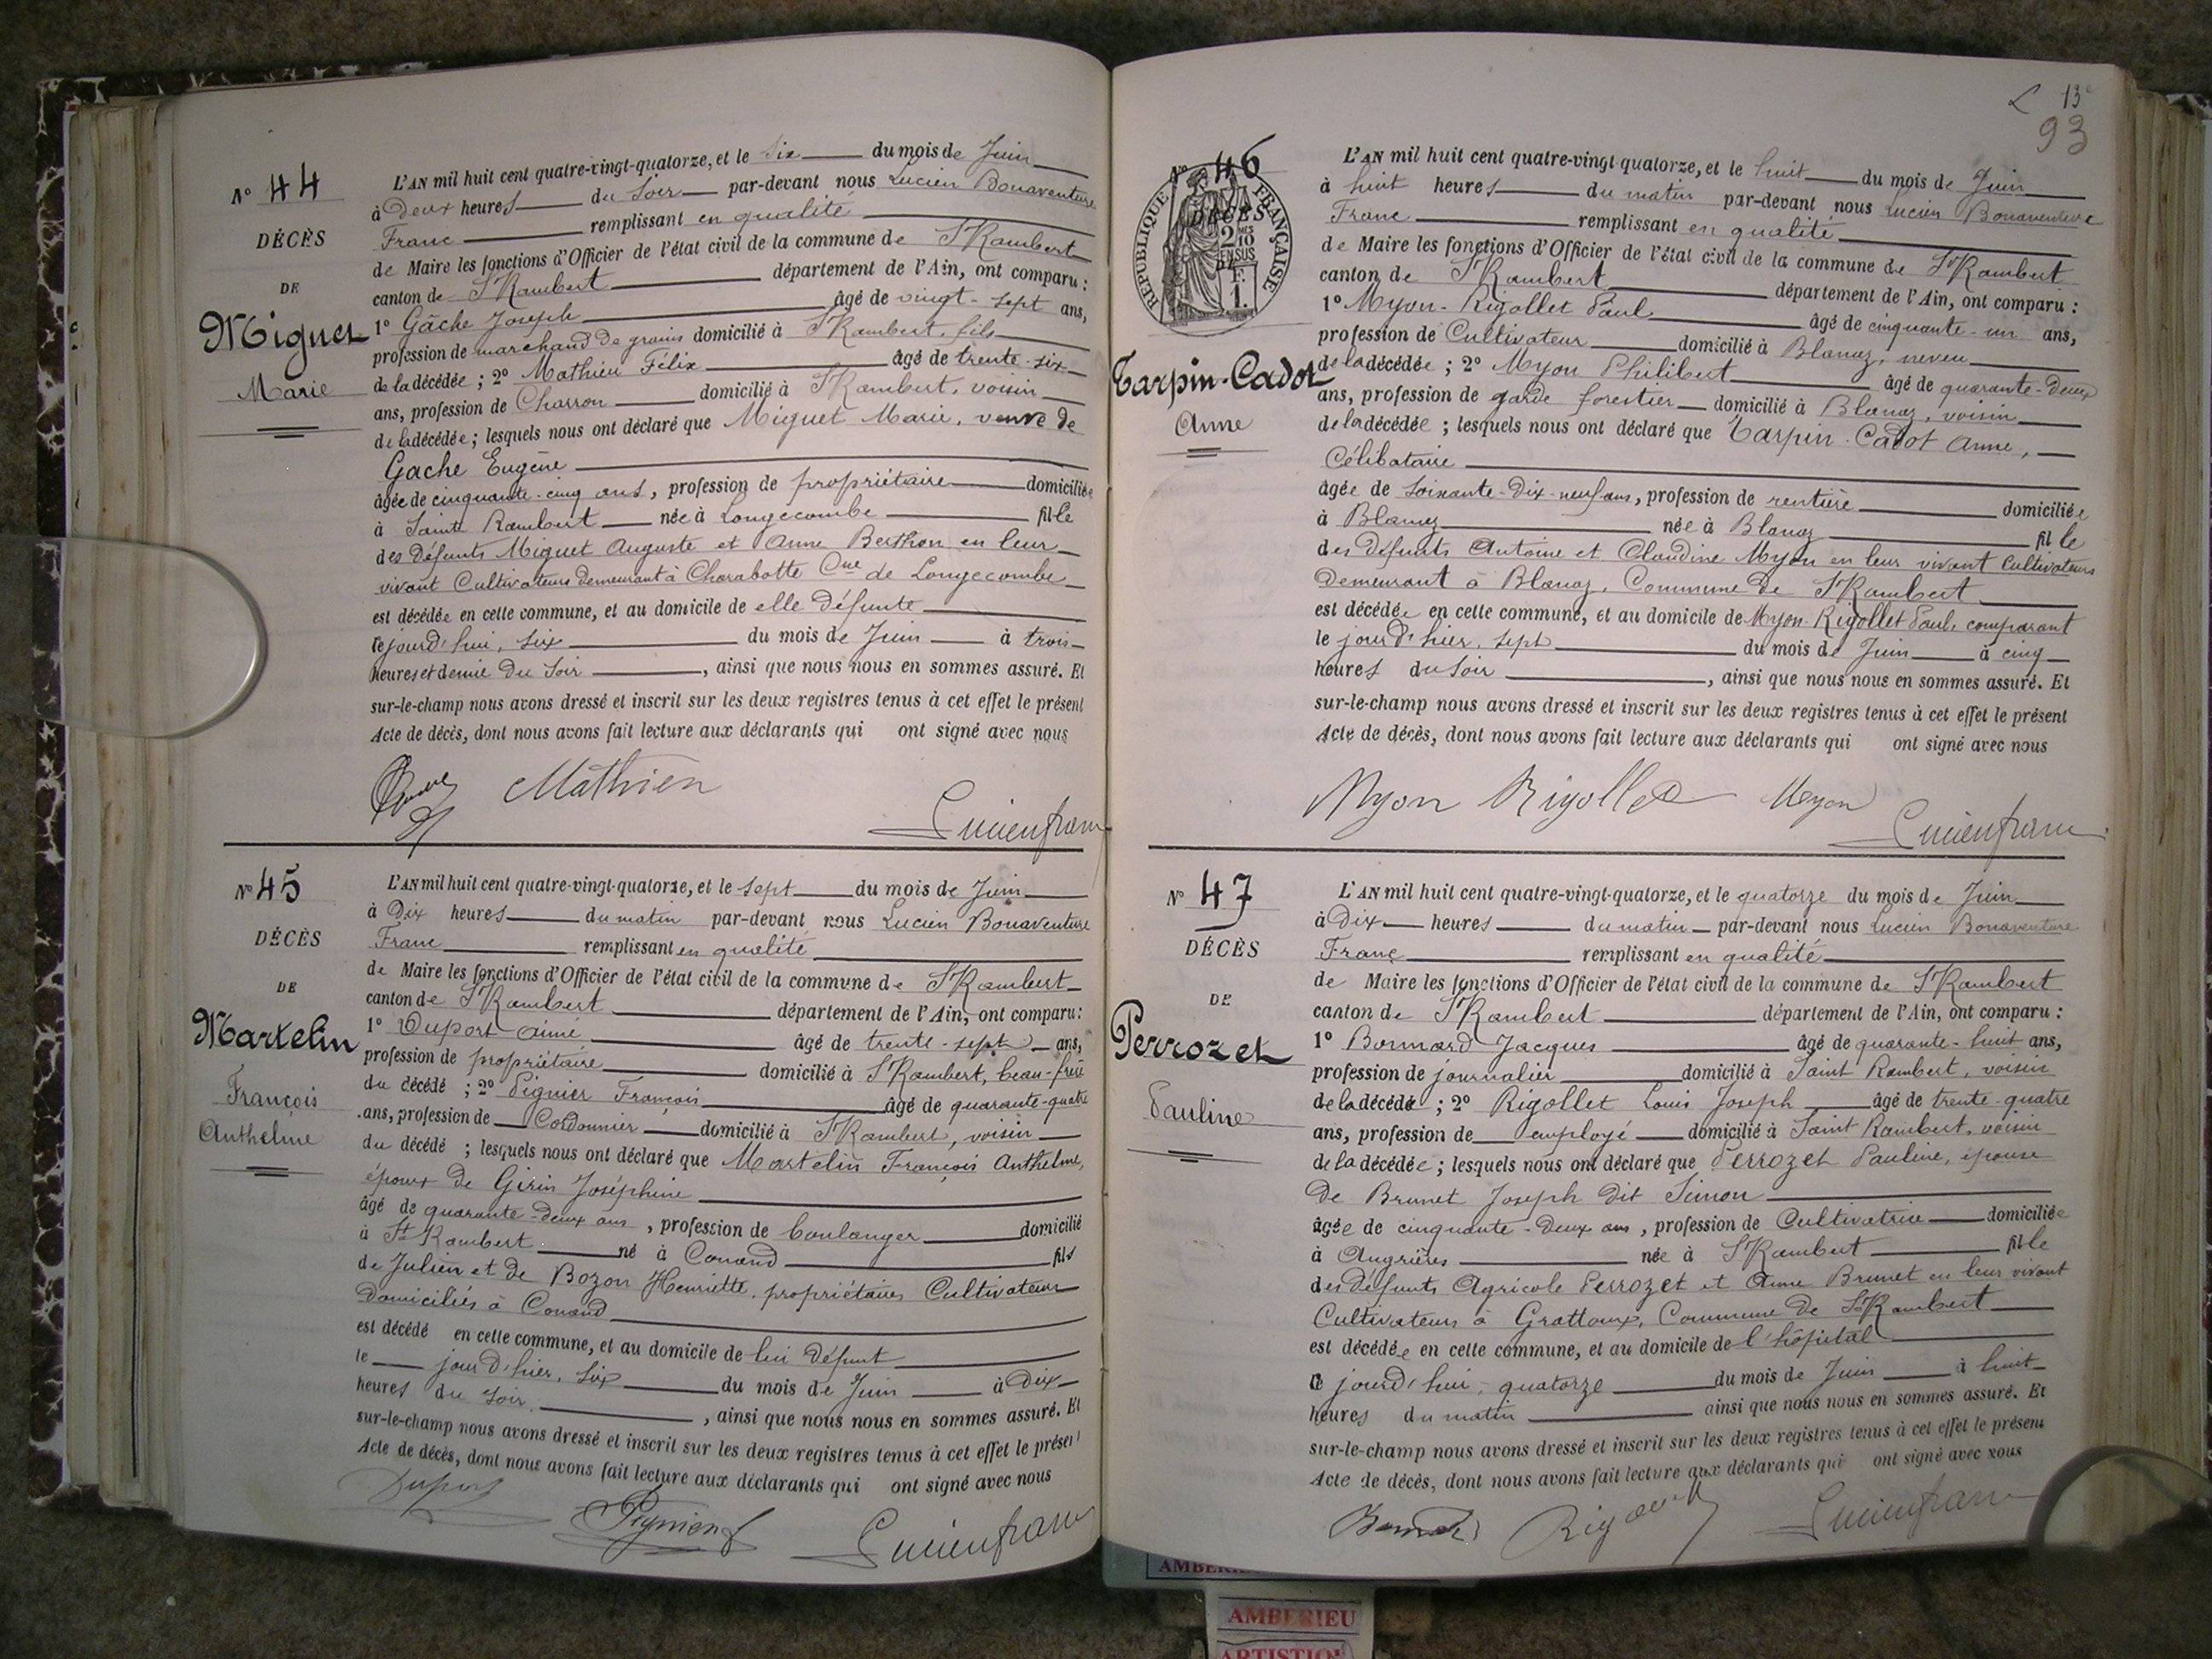 N° 44
DÉCÈS
DE
Miguet
Marie
L'AN mil huit cent quatre-vingt-quatorze, et le six du mois de Juin
à Deux heures du Soir par-devant nous Lucien Bonaventure
Franc remplissant en qualité
de Maire les fonctions d'Officier de l'état civil de la commune de St Rambert
canton de St Rambert département de l'Ain, ont comparu :
1° Gâche Joseph âgé de vingt-sept ans,
profession de marchand de grains domicilié à St Rambert, fils
de la décédée ; 2° Mathieu Félix âgé de trente-six
ans, profession de Charron domicilié à St Rambert, voisin
de la décédée ; lesquels nous ont déclaré que Miguet Marie, veuve de
Gache Eugène
âgée de cinquante-cinq ans, profession de propriétaire domiciliée
à Saint Rambert née à Longecombe fille
des Défunts Miguet Auguste et Anne Berthon en leur
vivant Cultivateurs Demeurant à Charabotte Cne de Longecombe
est décédée en cette commune, et au domicile de elle défunte
ce jourd'hui, six du mois de Juin à trois
heures et demie du Soir, ainsi que nous nous en sommes assuré. Et
sur-le-champ nous avons dressé et inscrit sur les deux registres tenus à cet effet le présent
Acte de décès, dont nous avons fait lecture aux déclarants qui ont signé avec nous
Mathieu
Lucien franc
N° 45
DÉCÈS
DE
Martelin
François
Anthelme
L'AN mil huit cent quatre-vingt-quatorze, et le sept du mois de Juin
à Dix heures du matin par-devant nous Lucien Bonaventure
Franc remplissant en qualité
de Maire les fonctions d'Officier de l'état civil de la commune de St Rambert
canton de St Rambert département de l'Ain, ont comparu :
1° Duport Aimé âgé de trente-sept ans,
profession de propriétaire domicilié à St Rambert, beau-frère
du décédé ; 2° Pignier François âgé de quarante-quatre
ans, profession de Cordonnier domicilié à St Rambert, voisin
du décédé ; lesquels nous ont déclaré que Martelin François Anthelme,
époux de Girin Joséphine
âgé de quarante-deux ans, profession de boulanger domicilié
à St Rambert né à Conand fils
de Julien et de Bozon Henriette, propriétaires Cultivateurs
Domiciliés à Conand
est décédé en cette commune, et au domicile de lui défunt
le jour d'hier, six du mois de Juin à Dix
heures du Soir, ainsi que nous nous en sommes assuré. Et
sur-le-champ nous avons dressé et inscrit sur les deux registres tenus à cet effet le présent
Acte de décès, dont nous avons fait lecture aux déclarants qui ont signé avec nous
Duport Pignier Lucien franc
13e
93
N° 46
DÉCÈS
RÉPUBLIQUE FRANÇAISE
2 MES 10 EN SUS
1 F.
Tarpin-Cadot
Anne
L'AN mil huit cent quatre-vingt-quatorze, et le huit du mois de Juin
à huit heures du matin par-devant nous Lucien Bonaventure
Franc remplissant en qualité
de Maire les fonctions d'Officier de l'état civil de la commune de St Rambert
canton de St Rambert département de l'Ain, ont comparu :
1° Myon-Rigollet Paul âgé de cinquante-un ans,
profession de Cultivateur domicilié à Blanaz, neveu
de la décédée ; 2° Myon Philibert âgé de quarante-deux
ans, profession de garde forestier domicilié à Blanaz, voisin
de la décédée ; lesquels nous ont déclaré que Tarpin-Cadot Anne,
Célibataire
âgée de Soixante-Dix-neuf ans, profession de rentière domiciliée
à Blanaz née à Blanaz fille
des Défunts Antoine et Claudine Myon en leur vivant Cultivateurs
Demeurant à Blanaz, Commune de St Rambert
est décédée en cette commune, et au domicile de Myon-Rigollet Paul, comparant
le jour d'hier, sept du mois de Juin à cinq
heures du Soir, ainsi que nous nous en sommes assuré. Et
sur-le-champ nous avons dressé et inscrit sur les deux registres tenus à cet effet le présent
Acte de décès, dont nous avons fait lecture aux déclarants qui ont signé avec nous
Myon Rigollet Myon
Lucien franc
N° 47
DÉCÈS
DE
Perrozet
Pauline
L'AN mil huit cent quatre-vingt-quatorze, et le quatorze du mois de Juin
à Dix heures du matin par-devant nous Lucien Bonaventure
Franc remplissant en qualité
de Maire les fonctions d'Officier de l'état civil de la commune de St Rambert
canton de St Rambert département de l'Ain, ont comparu :
1° Bonnard Jacques âgé de quarante-huit ans,
profession de journalier domicilié à Saint Rambert, voisin
de la décédée ; 2° Rigollet Louis Joseph âgé de trente-quatre
ans, profession de employé domicilié à Saint Rambert, voisin
de la décédée ; lesquels nous ont déclaré que Perrozet Pauline, épouse
De Brunet Joseph dit Simon
âgée de cinquante-Deux ans, profession de Cultivatrice domiciliée
à Angrières née à St Rambert fille
des Défunts Agricole Perrozet et Anne Brunet en leur vivant
Cultivateurs à Grattoux, Commune de St Rambert
est décédée en cette commune, et au domicile de l'hôpital
ce jourd'hui, quatorze du mois de Juin à huit
heures du matin ainsi que nous nous en sommes assuré. Et
sur-le-champ nous avons dressé et inscrit sur les deux registres tenus à cet effet le présent
Acte de décès, dont nous avons fait lecture aux déclarants qui ont signé avec nous
Lucien franc
AMBERIEU
AMBERIEU
ARTISTIQU